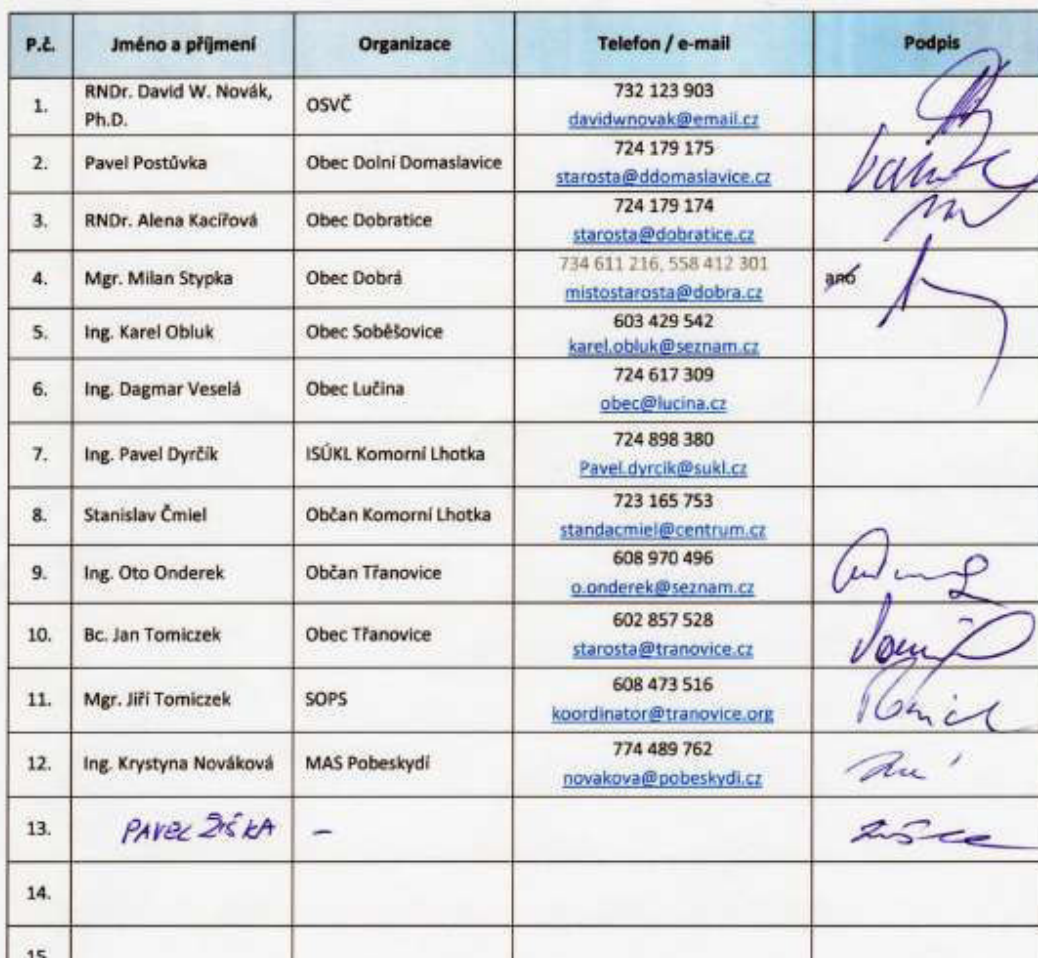 P.č. Jméno a příjmení Organizace Telefon / e-mail Podpis
1. RNDr. David W. Novák, Ph.D. OSVČ 732 123 903
davidwnovak@email.cz
2. Pavel Postůvka Obec Dolní Domaslavice 724 179 175
starosta@ddomaslavice.cz
3. RNDr. Alena Kacířová Obec Dobratice 724 179 174
starosta@dobratice.cz
4. Mgr. Milan Stypka Obec Dobrá 734 611 216, 558 412 301 ano
mistostarosta@dobra.cz
5. Ing. Karel Obluk Obec Soběšovice 603 429 542
karel.obluk@seznam.cz
6. Ing. Dagmar Veselá Obec Lučina 724 617 309
obec@lucina.cz
7. Ing. Pavel Dyrčík ISÚKL Komorní Lhotka 724 898 380
Pavel.dyrcik@sukl.cz
8. Stanislav Čmiel Občan Komorní Lhotka 723 165 753
standacmiel@centrum.cz
9. Ing. Oto Onderek Občan Třanovice 608 970 496
o.onderek@seznam.cz
10. Bc. Jan Tomiczek Obec Třanovice 602 857 528
starosta@tranovice.cz
11. Mgr. Jiří Tomiczek SOPS 608 473 516
koordinator@tranovice.org
12. Ing. Krystyna Nováková MAS Pobeskydí 774 489 762
novakova@pobeskydi.cz
13. PAVEL ŽIŠKA –
14.
15.